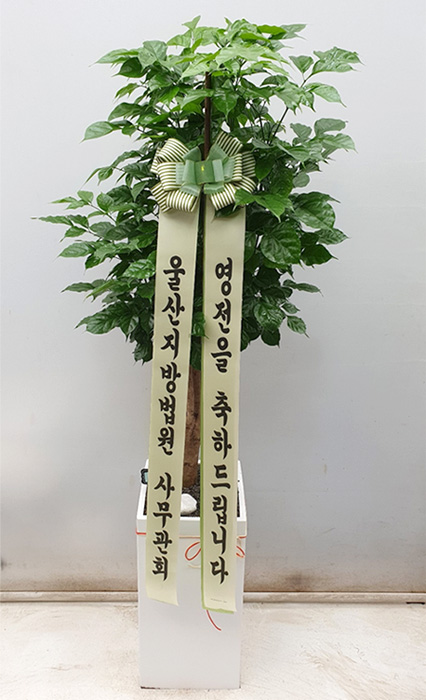 영전을 축하드립니다
울산지방법원 사무관회